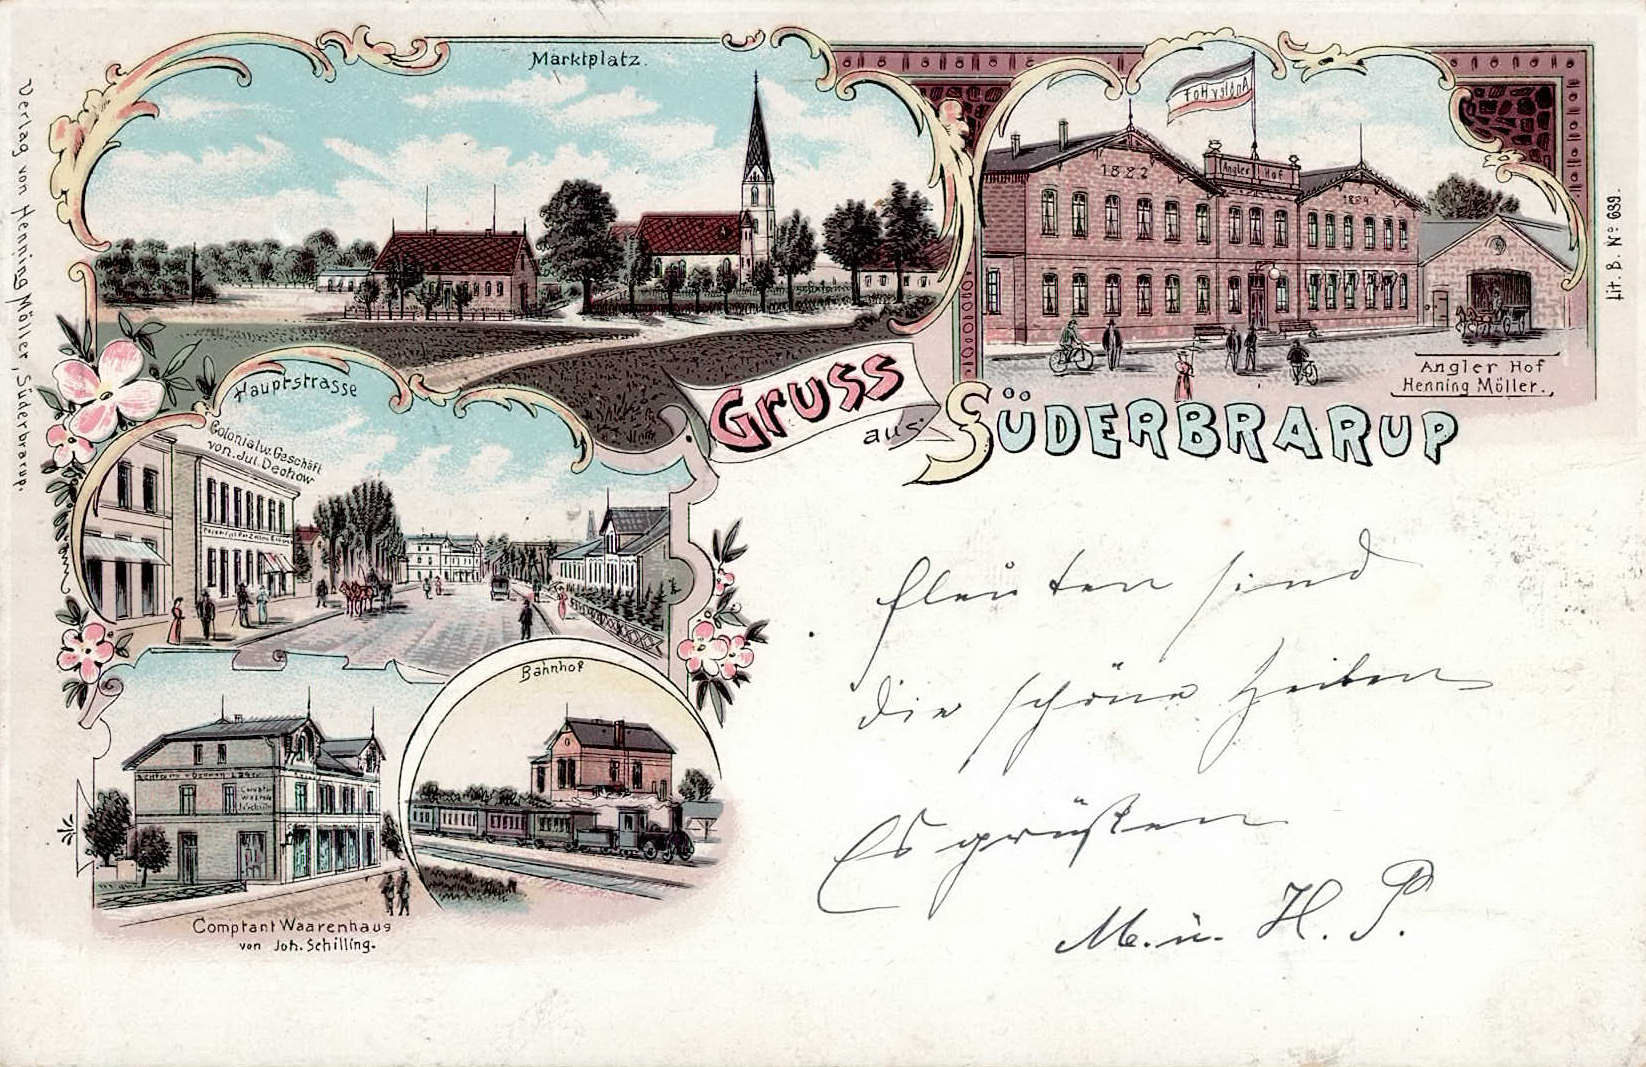 Marktplatz.
Angler Hof
1882
Angler Hof
1894
Angler Hof
Henning Möller.
Gruss
aus
SÜDERBRARUP
Hauptstrasse
Colonialw. Geschäft
von Jul. Dechow
Bahnhof
Comptant Waarenhaus
von Joh. Schilling.
Verlag von Henning Möller, Süderbrarup.
Lit. B. No 639.
sind
die schöne
Es grüßen
M. u. H. P.